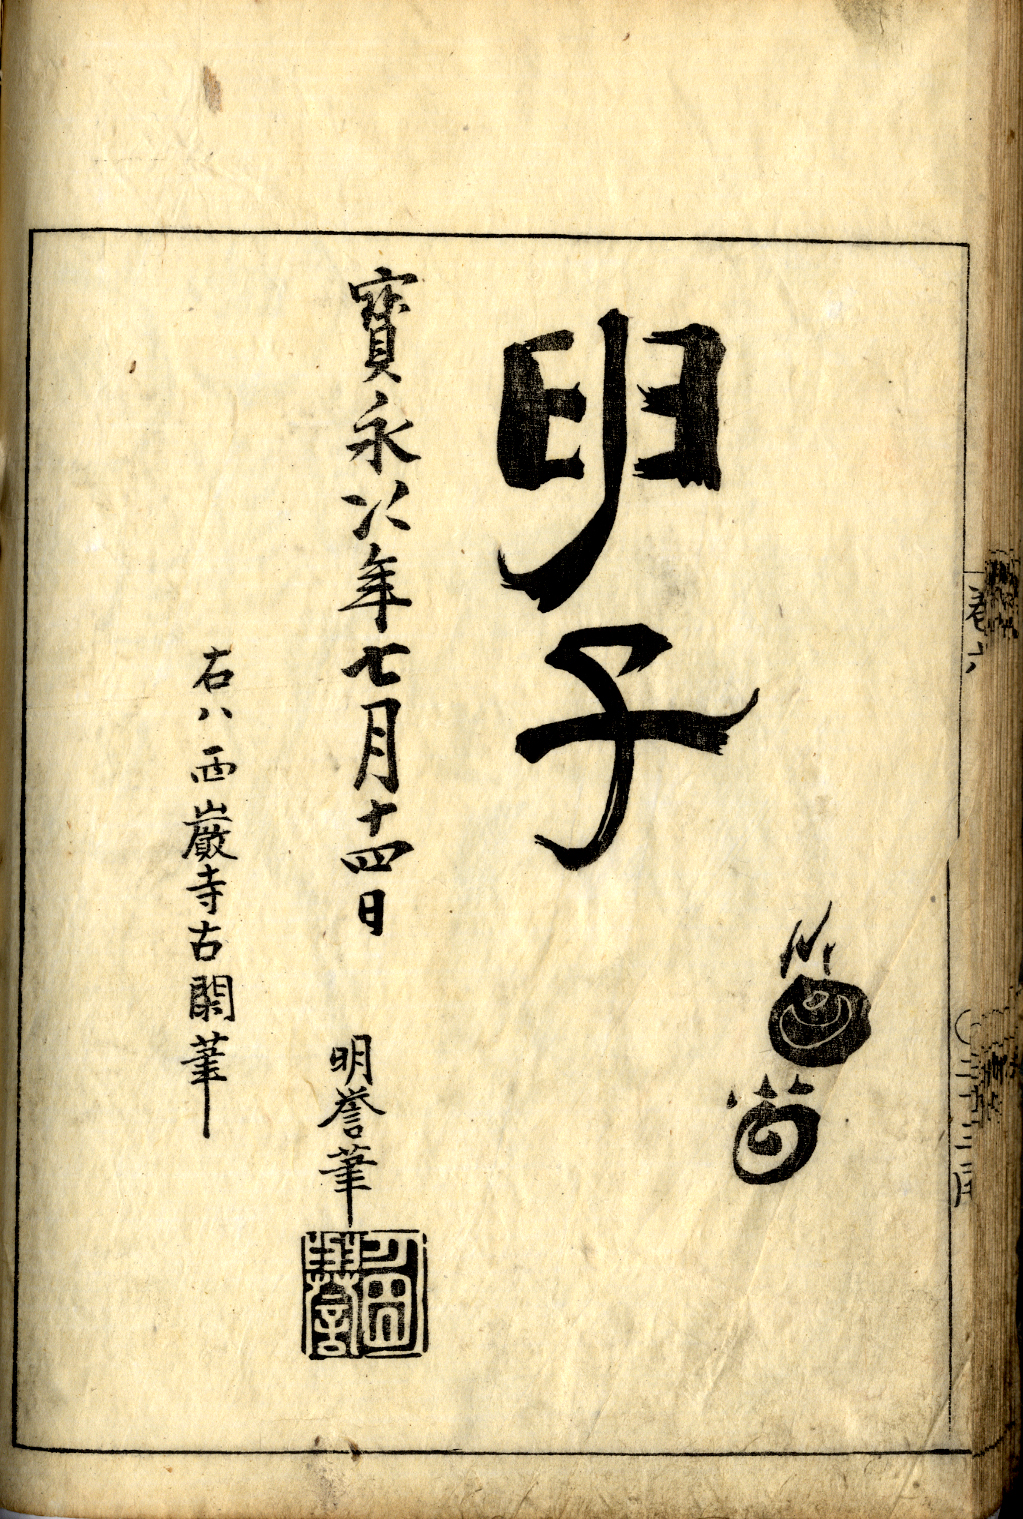 卷六
子
寶永六年七月十四日
明誉筆
明譽
右ハ西巖寺古閒筆